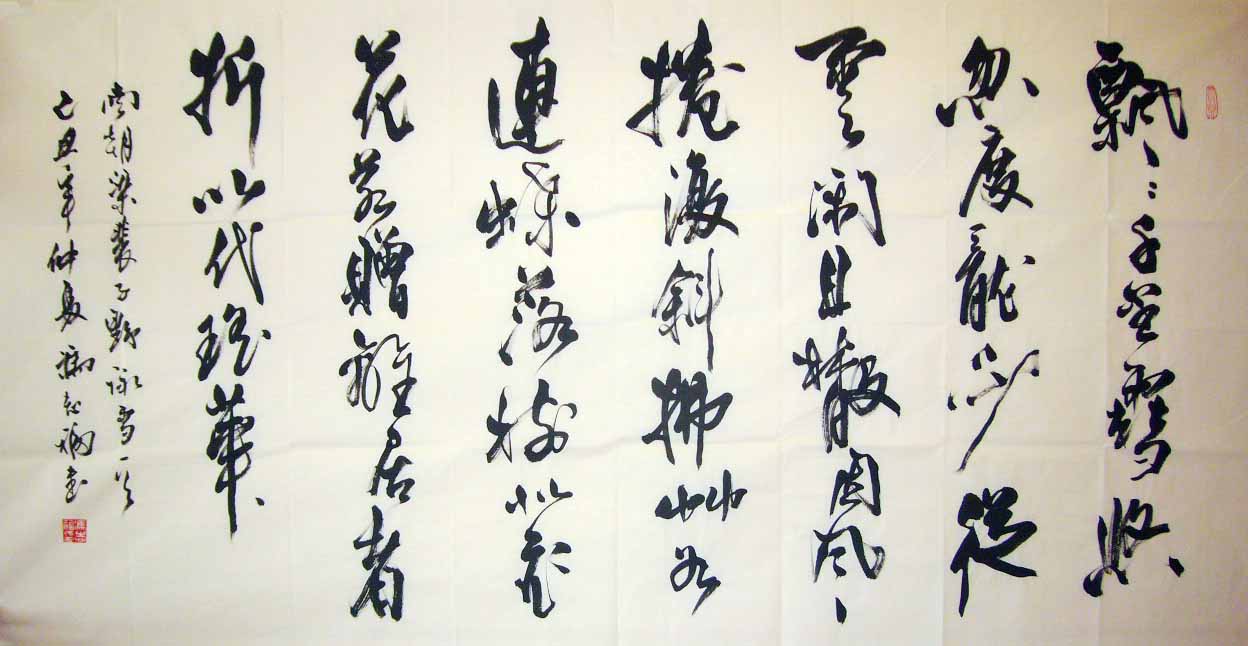 飄〻千里雪倏
忽度龍沙從
雲且散因風
捲復斜拂艸如
連蝶落樹似飛
花若贈離居者
折以代瑤華
南朝梁裴子野詠雪一首
己丑年仲夏 書